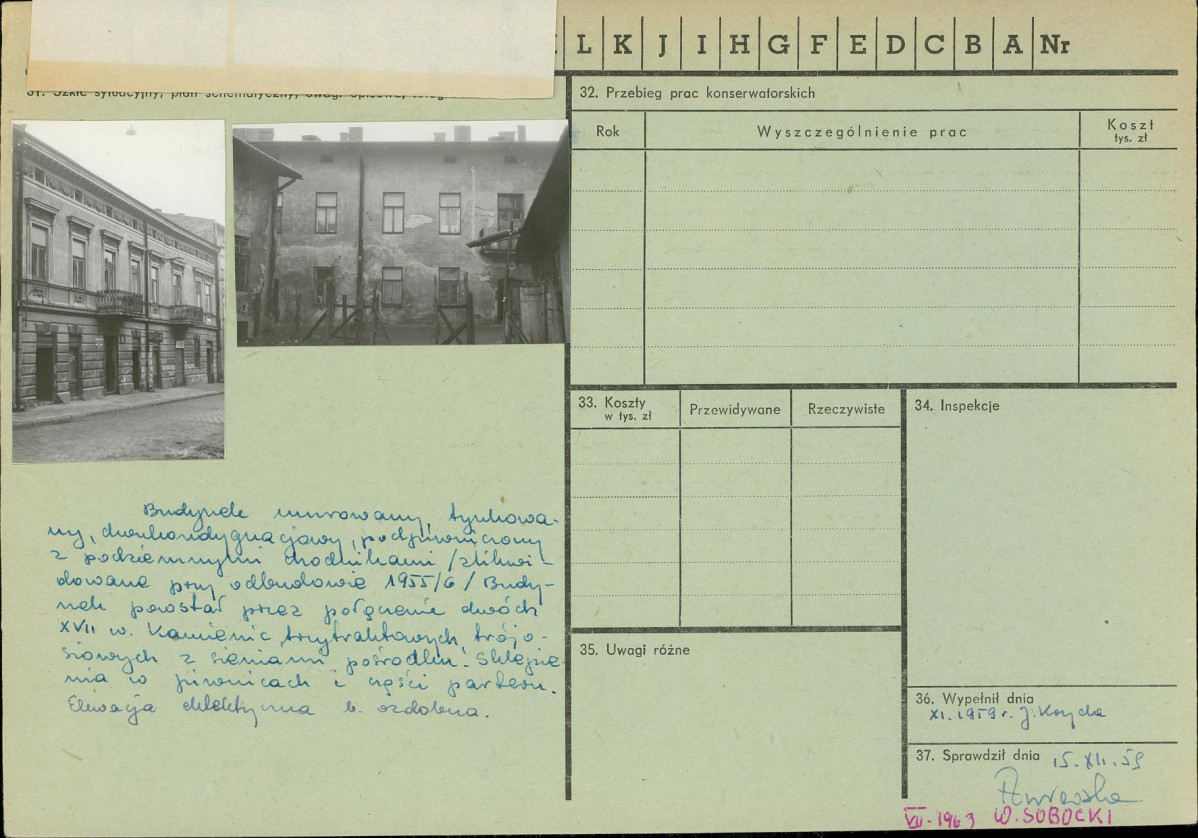 L K J I H G F E D C B A Nr
31. Szkic sytuacyjny, plan schematyczny, uwagi opisowe,
32. Przebieg prac konserwatorskich
Rok
Wyszczególnienie prac
Koszt
tys. zł
Budynek murowany, tynkowa-
ny, dwukondygnacjowy, podpiwniczony
z podziemnymi chodnikami /zlikwi-
dowane przy odbudowie 1955/6/ Budy-
nek powstał przez połączenie dwóch
XVII w. Kamienic trzytraktowych, trójo-
siowych z sieniami pośrodku. Sklepie-
nia w piwnicach i części parteru.
Elewacja eklektyczna b. ozdobna.
33. Koszty
w tys. zł
Przewidywane
Rzeczywiste
34. Inspekcje
35. Uwagi różne
36. Wypełnił dnia
XI. 1959 r. J.
37. Sprawdził dnia 15.XII.59
VII-1963 W. SOBOCKI